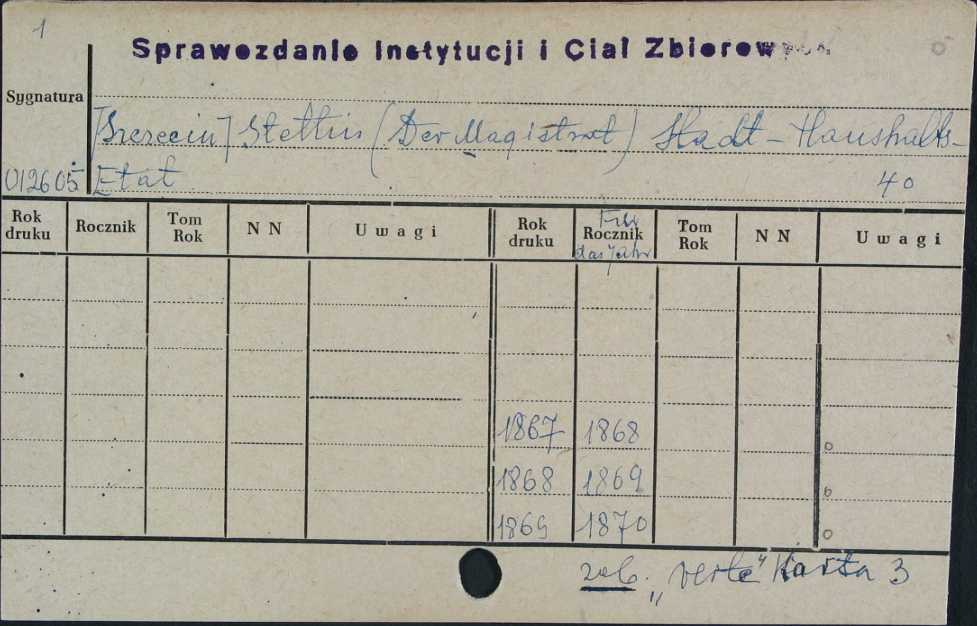 1
Sprawozdanie Instytucji i Ciał Zbiorowych
Sygnatura
[Szczecin] Stettin (Der Magistrat) Stadt-Haushalts-
012605 Etat 40
Rok druku Rocznik Tom Rok N N Uwagi Rok druku Für Rocznik das Jahr Tom Rok N N Uwagi
1867 1868 o
1868 1869 o
1869 1870 o
zob. „verte" Karta 3